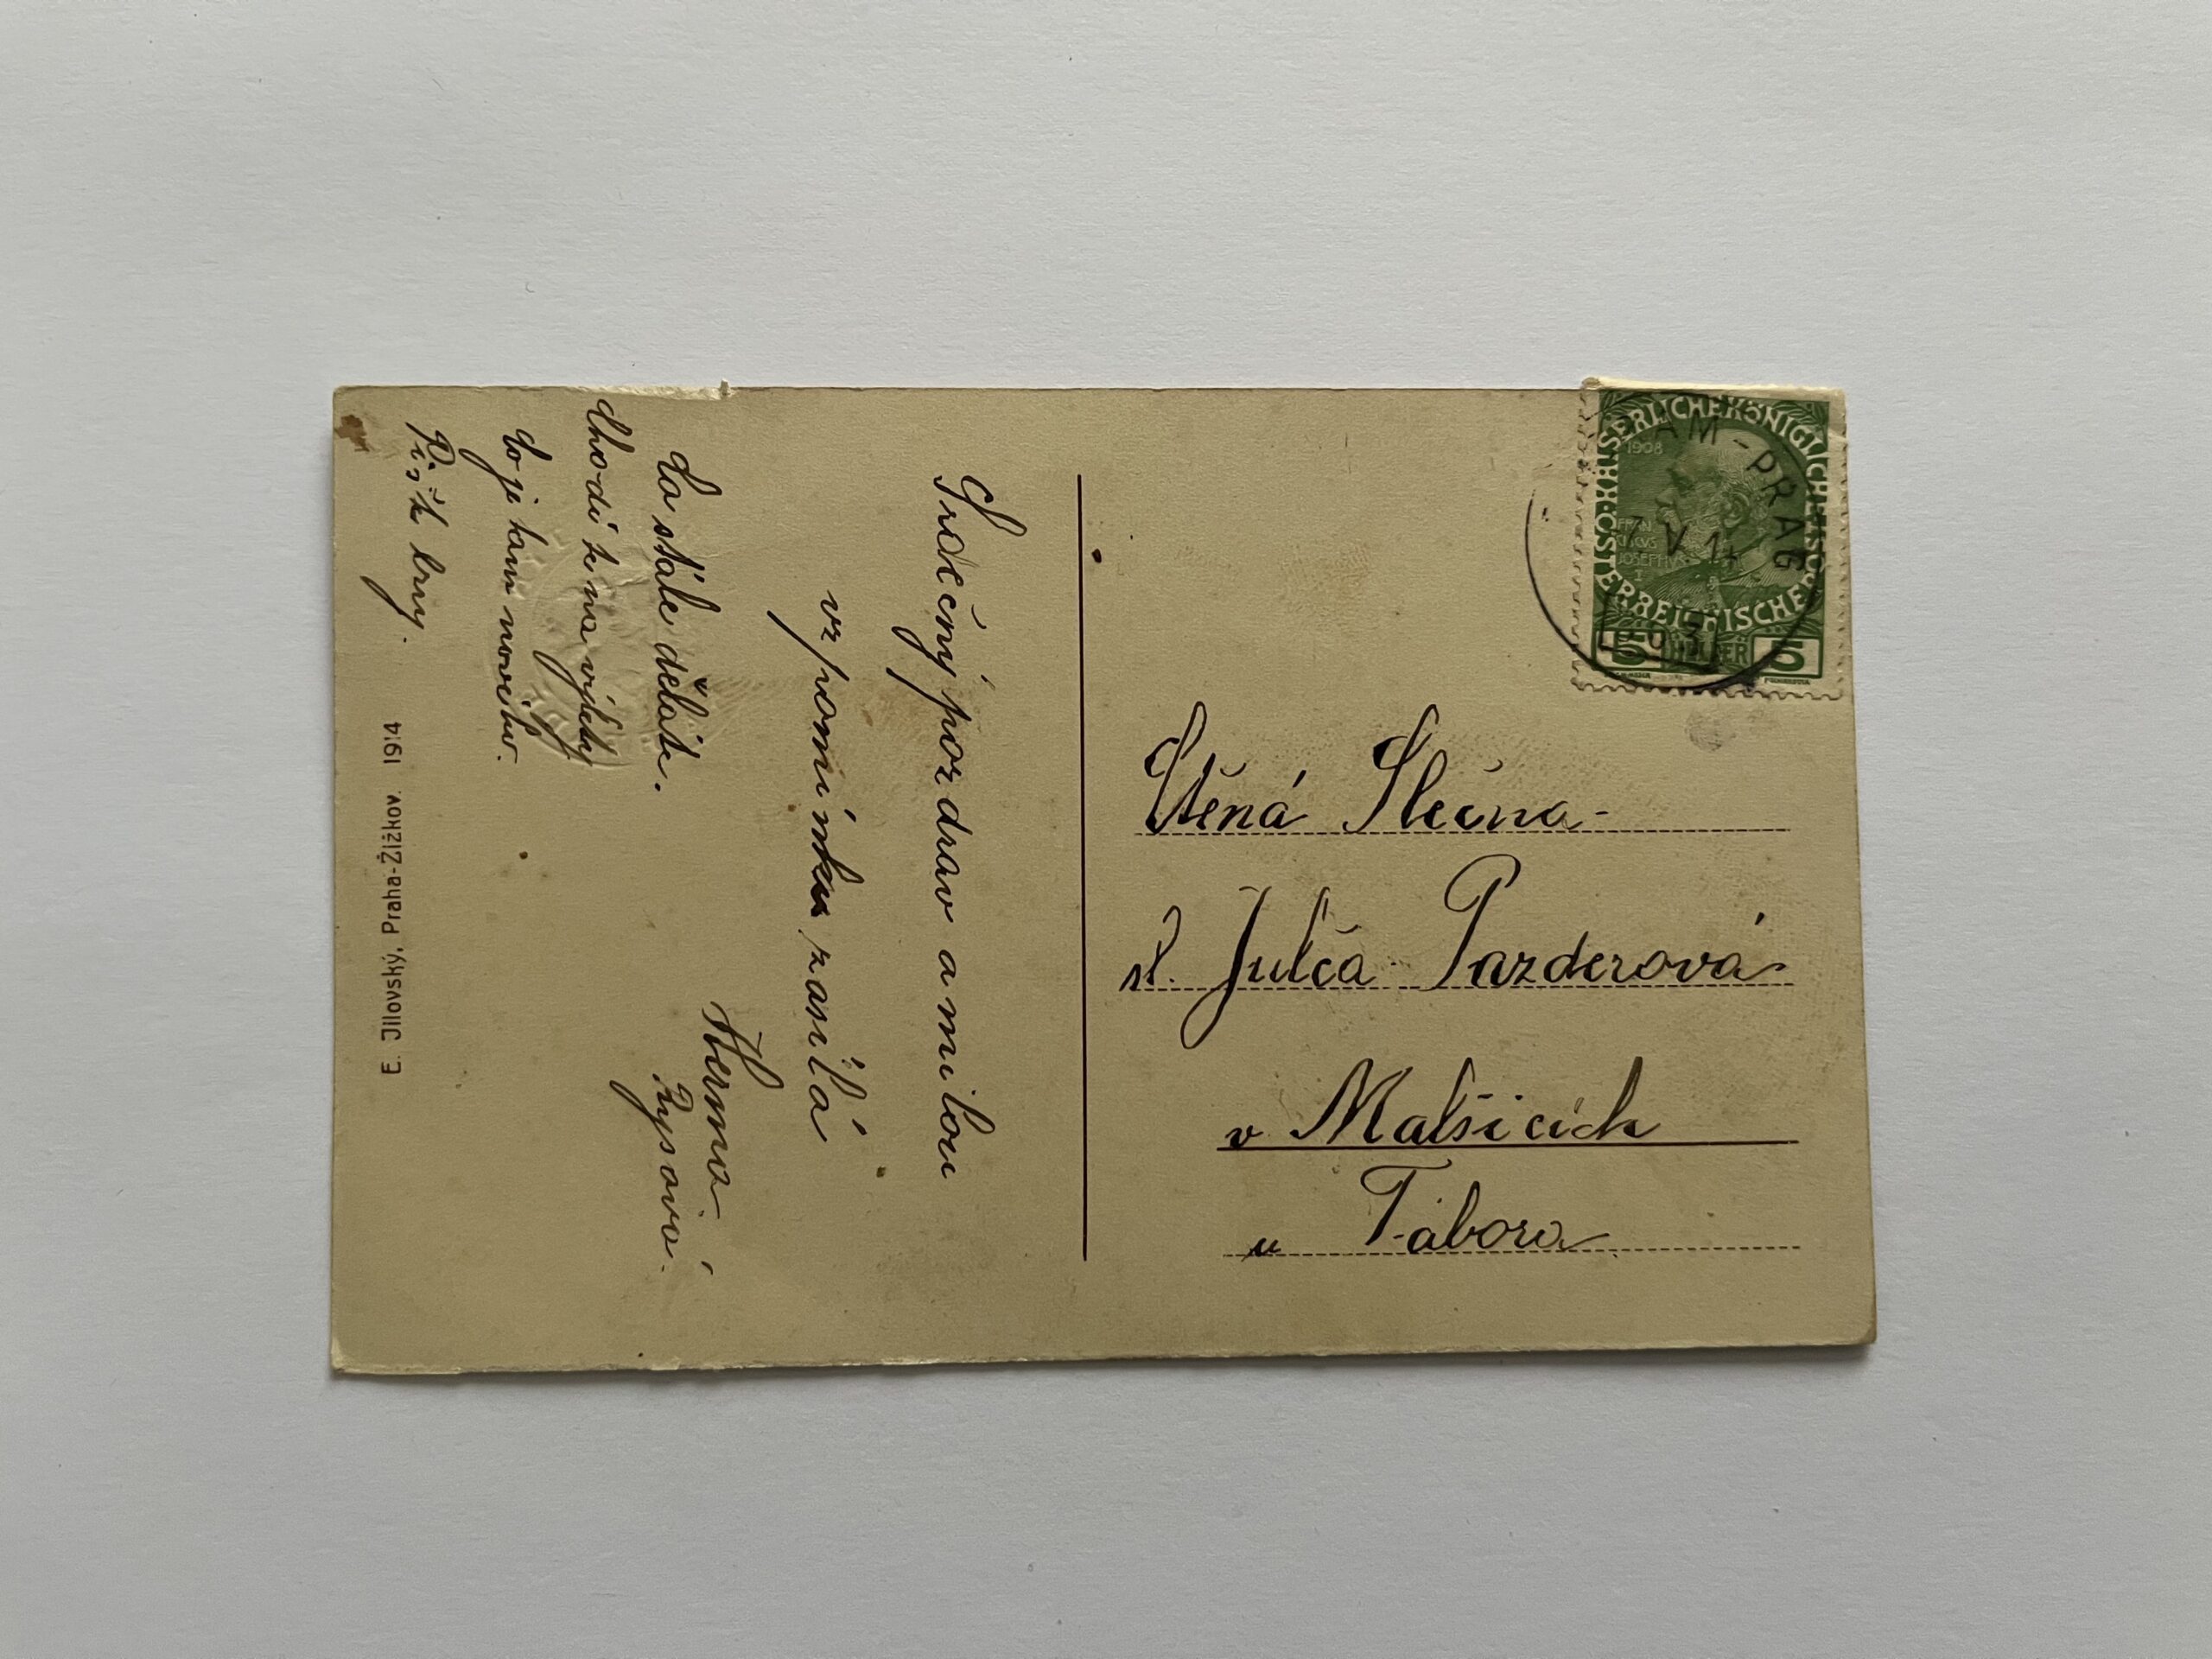 Srdečný pozdrav a milou
vzpomínku zasílá
Herma
Rysová.
Co stále děláte.
Chodíte na výlety
co je tam nového.
Pište brzy.
E. Jílovský, Praha-Žižkov. 1914
KAISERLICHE KÖNIGLICHE ÖSTERREICHISCHE POST
1908
FRAN
CISCVS
JOSEPHVS
I
5 HELLER 5
AM - PRAG
7 V 14
Ctěná Slečna
sl. Julča Pazderová
v Malšicích
u Tábora